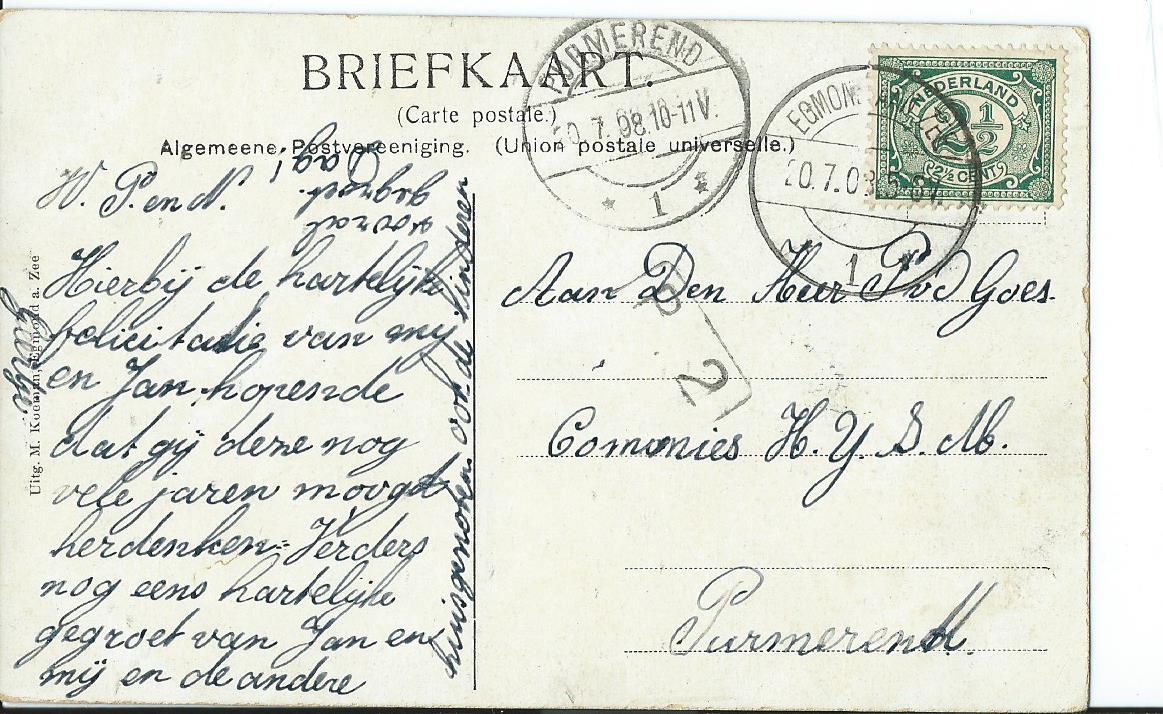 BRIEFKAART.
(Carte postale.)
Algemeene Postvereeniging. (Union postale universelle.)
PURMEREND
20.7.08.10-11V.
1
EGMOND
20.7.08.
1
NEDERLAND
2½
2½ CENT
W. P. en N.
Hierbij de hartelijke
felicitatie van mij
en Jan, hopende
dat gij deze nog
vele jaren moogd
herdenken. Verders
nog eens hartelijke
gegroet van Jan en
mij en de andere
huisgenooten ook de kinderen
vooral
gegroet.
Dag!
Uitg. M. Koeman, Egmond a. Zee
Aan Den Heer P v d Goes.
Commies H. Y. S. M.
Purmerend.
2